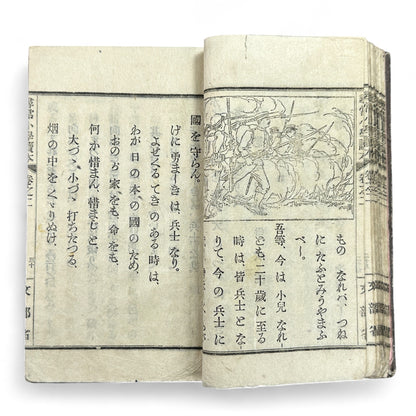 ものなれバ、つね
にたふとみうやまふ
べし。
吾等、今は小兒なれ
ども、二十歳に至る
時は皆兵士とな
りて、今の兵士に
國を守らん。
げに勇ましきは、兵士なり。
よせくるてきのある時は、
わが日の本の國のため、
おのが家をも、命をも、
何か惜まん、惜まじと、
大づゝ、小づゝ、打ちたつる、
烟の中をくゞりぬけ、
尋常小學讀本 卷之三
文部省